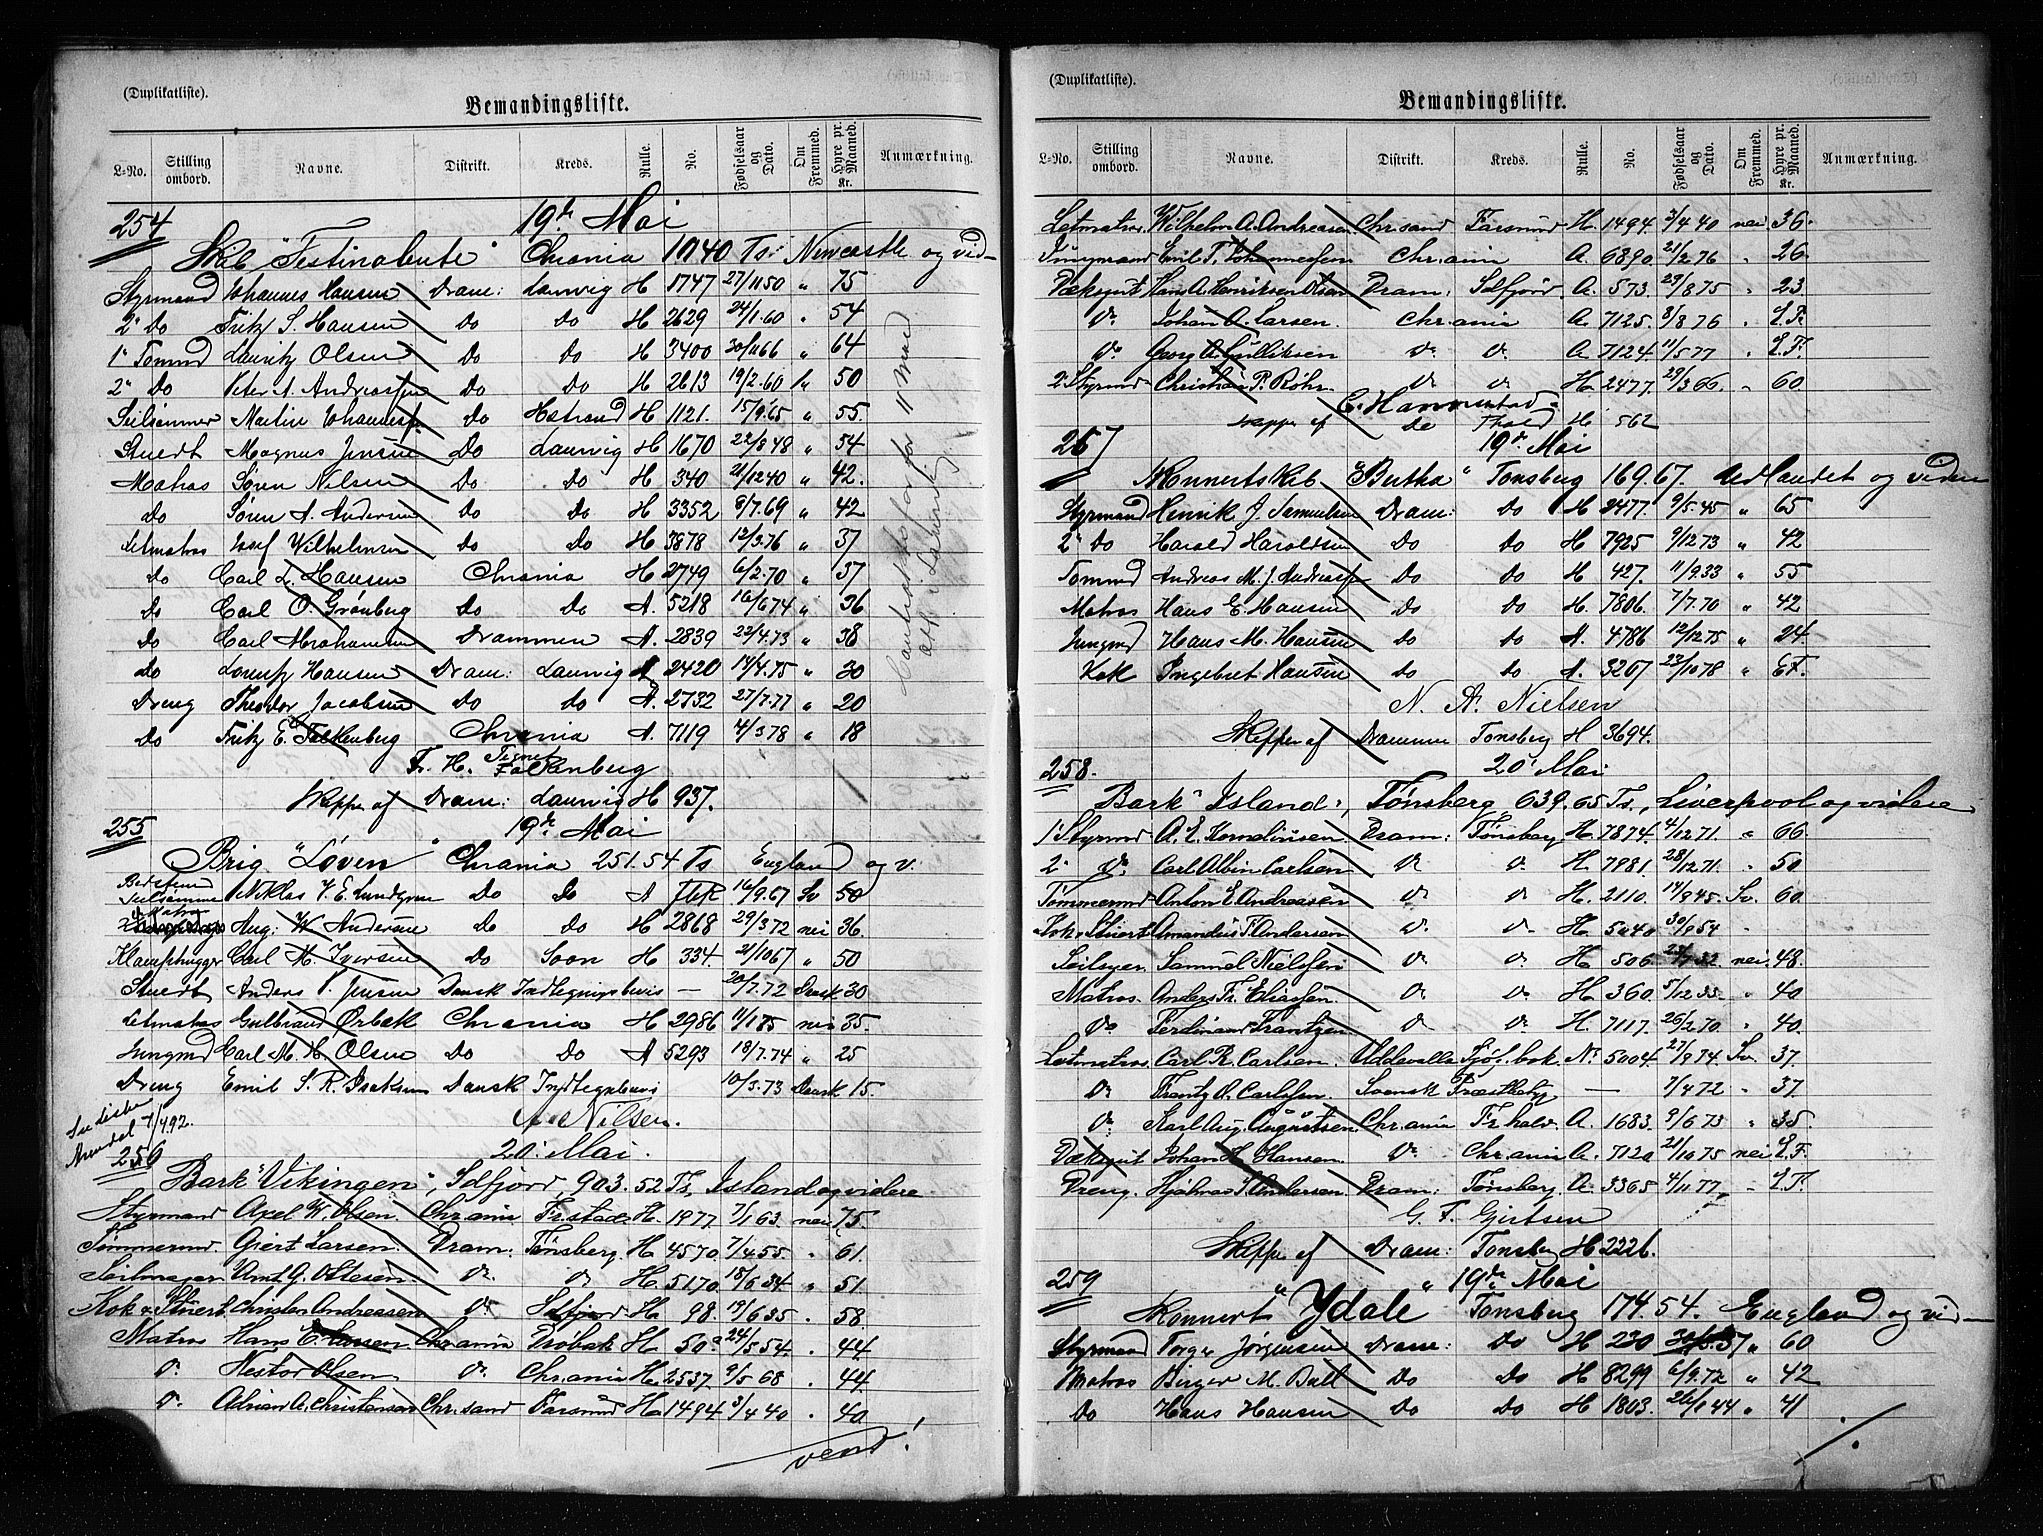 (Duplikatliste).
Bemandingsliste.
L-No. Stilling ombord. Navne. Distrikt. Kreds. Rulle. No. Fødselsaar og Dato. Om Fremmed. Hyre pr. Maaned. Kr. Anmærkning.
254 19de Mai
Skb "Festinalente" Chrania 1040 Ts: Newcastle og vid-
Styrmand Johannes Hansen Dram: Laurvig H 1747 27/11 50 " 75
2" Do Fritz S. Hansen Do Do H 2629 24/1 60 " 54
1" Tømmd Lauritz Olsen Do Do H 3400 30/11 66 " 64
2" Do Peter A. Andreassen Do Do H 2613 19/2.60 " 50
Seilsømmer Martin Johannesen Do Hstrand H 1121. 15/9.65 " 55.
Stuert Magnus Jensen Do Laurvig H 1670 22/8 48 " 54
Matros Søren Nilsen Do Do H 340 21/12 40 " 42.
Do Søren A. Andersen Do Do H 3352 8/7.69 " 42
Letmatros Josef Wilhelmsen Do Do H 3878 12/3.76 " 37
Do Carl L. Hansen Chrania H 2749 6/2.70 " 37
Do Carl O. Grønberg Do Do A. 5218 16/6 74 " 36
Do Carl Abrahamsen Drammen A. 2839 22/4.73 " 38
Do Lorentz Hansen Dram: Laurvig A 2420 14/4.75 " 30
Dreng Theodor Jacobsen Do Do A. 2732 27/7.77 " 20
Do Fritz E. Falkenberg Chrania A. 7119 4/3 78 " 18
Fr. H. Falkenberg
Skipper af Dram: Laurvig H 937.
255 19de Mai
Brig "Løven" Chrania 251.54 Ts England og v.
Niklas V. E. Lundgren Do Do A 16/9.67 Sv 50
Aug: W. Andersen Do Do H 2868 29/3 72 nei 36.
Klamphugger Carl H. Iversen Do Soon H 334. 21/10 67 " 50
Stuert Anders P. Jensen Dansk Indtegningsbevis — 20/7.72 Dansk 30
Letmatros Gulbrand Ørbæk Chrania H 2986 11/1 75 nei 35.
Jungmd Carl M. H. Olsen Do Do A 5293 18/7.74 " 25
Dreng Emil S. R. Isaksen Dansk Indtegsbevis 10/3.73 Dansk 15.
A. Nilsen.
Se Liste Arendal 7/4 92.
256 20. Mai.
Bark "Vikingen", Sdfjord, 903.52 Ts, Island og videre.
Styrmand Axel W. Olsen. Chrania Fr.stad H. 1977 7/1 63. nei 75
Tømmermd. Giert Larsen. Dram. Tønsberg. H. 4570 7/4 55. . 61.
Seilmager Amt G. Ottesen Do Do H. 5170 18/6 34 " 51
Kok & Stuert. Christen Andreassen Do Sdfjord H. 98. 19/6 35 . 58.
Matros Hans C. Larsen Chrania Drøbak H. 50a 24/5 54. . 44.
Do Nestor Olsen Do Chrania H. 2537. 9/5 68 . 44.
Do Adrian A. Christensen Chr.sand Farsund H. 1494 3/4 40 . 40.
vend!
Contrasteret for 11 Mand

(Duplikatliste).
Bemandingsliste.
L-No. Stilling ombord. Navne. Distrikt. Kreds. Rulle. No. Fødselsaar og Dato. Om Fremmed. Hyre pr. Maaned. Kr. Anmærkning.
Letmatros. Wilhelm A. Andreasen Chr.sand Farsund H. 1494. 3/4 40 nei 36.
Jungmand Emil T. Johannessen Chrania A. 6890. 21/2 76 " 26.
Dæksgut Hans A. Henriksen Olsen Dram. Sdfjord A. 573. 29/8 75 . 23
Do Johan A. Larsen. Chrania A. 7125. 3/8 76 . E.F.
Do Georg A. Gulliksen Do Do A. 7124 11/5 77 . E.F.
2. Styrmd Christian P. Røhr Do Do H. 2477. 29/3 66. . 60
C. Hammerstad
Skipper af Do Fhald H 562
267 19de Mai
Konnertskib "Bertha" Tonsberg 169.67. Udlandet og videre
Styrmand Henrik J. Samuelsen Dram: Do H 2477. 9/5.45 " 65
2" Do Harald Haroldsen Do Do H 7925 9/12 73 " 42
Tommd Andreas M. J. Andreassen Do Do H 427. 11/9.33 " 55
Matros Hans E. Hansen Do Do H. 7806. 7/7.70 " 42
Jungmd Hans M. Hansen Do Do A. 4786 12/12.75 " 24.
Kok Ingebret Hansen Do Do A. 3267 23/10 78 " E.F.
N. A. Nielsen
Skipper af Drammen Tonsberg H 3694.
258. 20' Mai
Bark "Island", Tønsberg, 639.65 Ts, Liverpool og videre
1' Styrmd A. E. Kornelinsen Dram: Tønsberg H. 7874. 4/12 71. " 66
2" Do Carl Albin Carlsen Do Do H. 7981. 28/12 71. . 50
Tømmermd Anton E. Andreasen Do Do H. 2110. 14/9 45. Sv. 60.
Kok & Stuert Amandus F. Andersen Do Do H. 5040 30/9 54 .
Seilsyer. Samuel Nielsen Do Do H 506. 32. nei 48.
Matros. Anders Fr. Eliassen Do Do H. 360. 5/12 35. . 40
Do Ferdinand Frantzen Do Do H. 7117. 26/2.70 . 40.
Letmatros. Carl R. Carlsen. Uddevalla Sjöf. bok. No. 5004. 27/9 74. Sv. 37.
Do Frantz O. Carlsen. Svensk Præstbevis — 7/4 72 . 37.
Do Karl Aug. Augustsen Chrania Fr.hald. A. 1683. 9/6 73 . 35.
Dæksgut Johan H. Hansen. Do Chrania A. 7120 21/10 75 nei E.F.
Dreng. Hjalmar S. Andersen. Dram: Tønsberg A. 3365 4/11 77 - E.F.
G. F. Gjertsen
Skipper af Dram: Tonsberg H 2226.
259 19de Mai
Konnert "Ydale" Tonsberg 174.54. England og vid-
Styrmand Torger Jørgensen Dram: Do H 220 37 " 60
Matros Birger M. Bull Do Do H 8299 6/9.72 " 42
Do Hans Hansen Do Do H 1803. 26/1 44 " 41